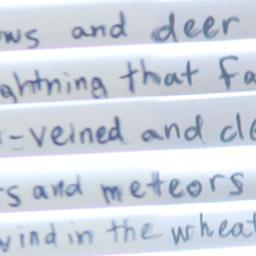 ws and deer
ghtning that fa
-veined and cle
s and meteors
wind in the wheat